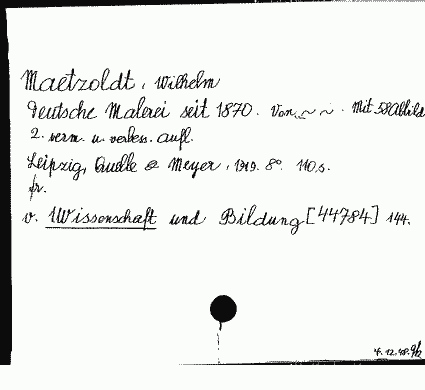 Maetzoldt, Wilhelm
Deutsche Malerei seit 1870. Von ~ ~. Mit 58 Abbild
2. verm. u. verbess. Aufl.
Leipzig, Quelle & Meyer, 1919. 8°. 110 s.
fr.
v. Wissenschaft und Bildung [44784] 144.
4.12.48.